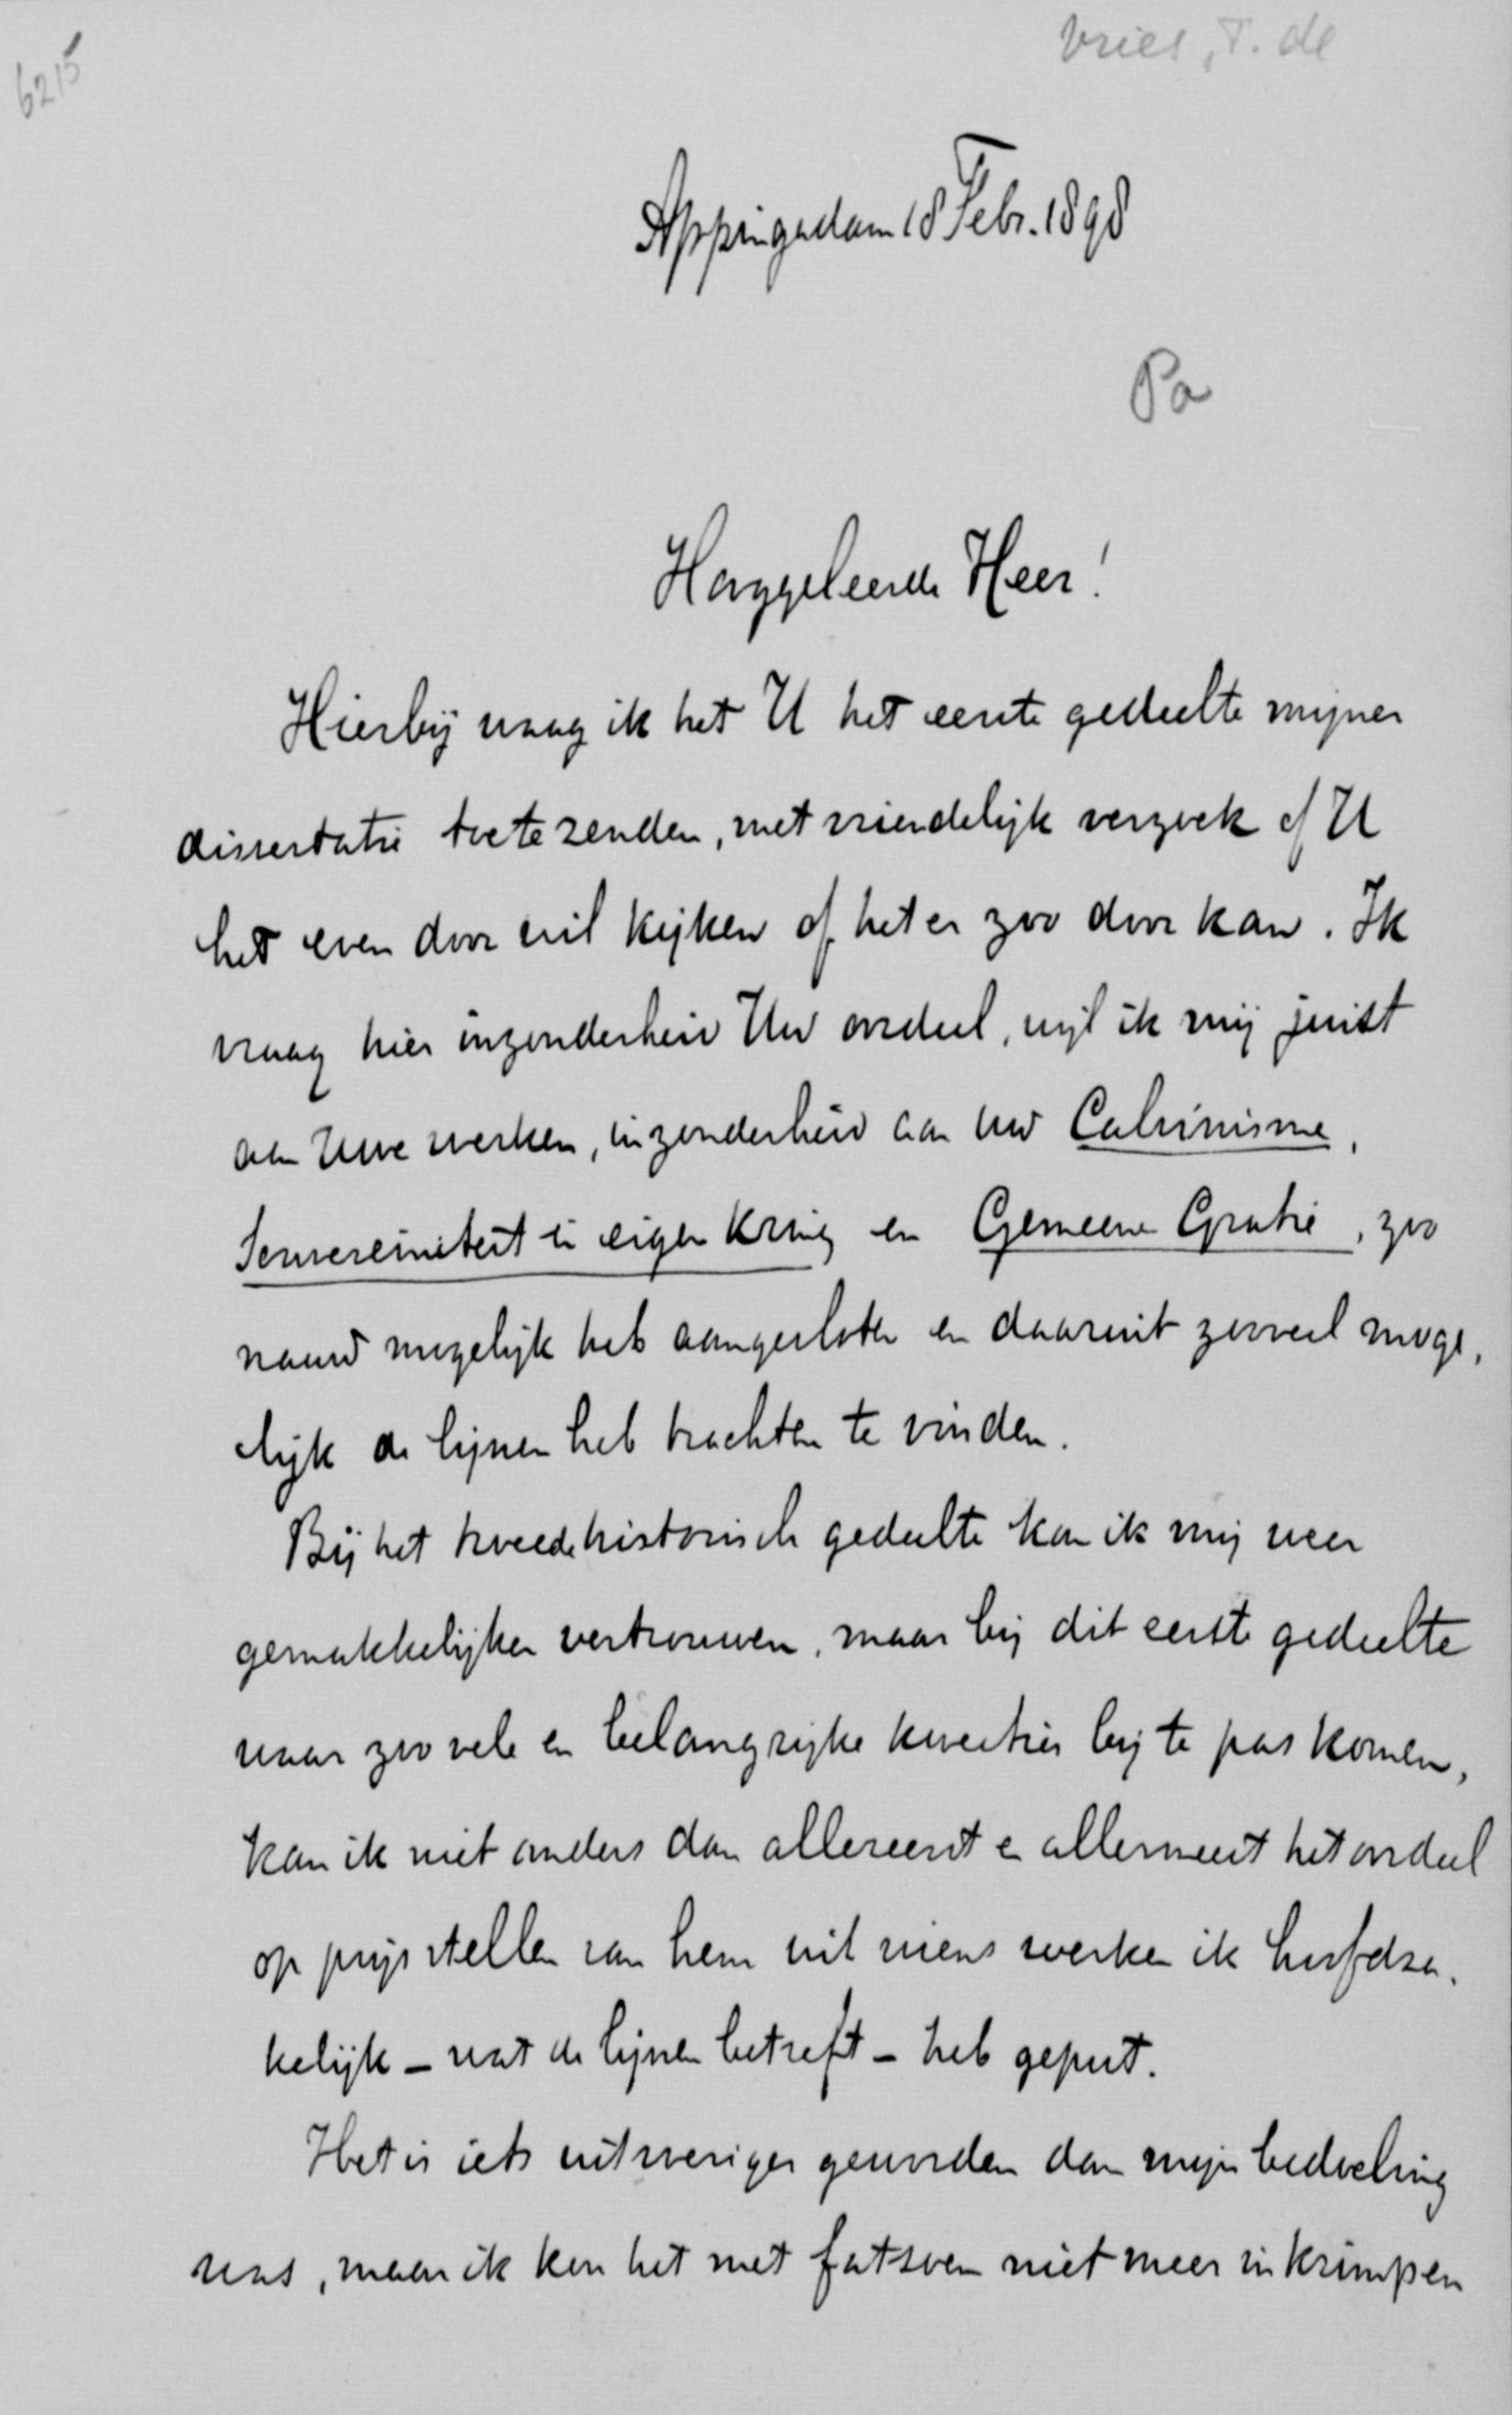 6215
Vries, T. de
Appingedam 18 Febr. 1898
Pa
Hooggeleerde Heer!
Hierbij waag ik het U het eerste gedeelte mijner
dissertatie toe te zenden, met vriendelijk verzoek of U
het even door wil kijken of het er zoo door kan. Ik
vraag hier inzonderheid Uw oordeel, wijl ik mij juist
aan Uwe werken, inzonderheid aan Uw Calvinisme,
Souvereiniteit in eigen Kring en Gemeene Gratie, zoo
nauw mogelijk heb aangesloten en daaruit zooveel moge-
lijk de lijnen heb trachten te vinden.
Bij het tweede historisch gedeelte kan ik mij weer
gemakkelijker vertrouwen, maar bij dit eerste gedeelte
waar zoo vele en belangrijke kwesties bij te pas komen,
kan ik niet anders dan allereerst en allermeest het oordeel
op prijs stellen van hem uit wiens werken ik hoofdza-
kelijk - wat de lijnen betreft - heb geput.
Het is iets uitvoeriger geworden dan mijn bedoeling
was, maar ik kon het met fatsoen niet meer inkrimpen